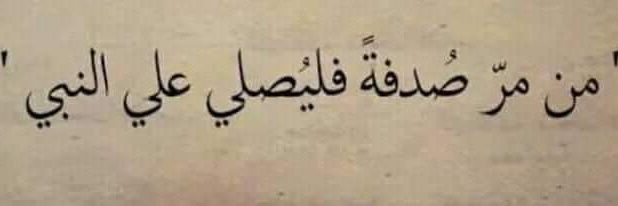 " من مرّ صُدفةً فليُصلي علي النبي "